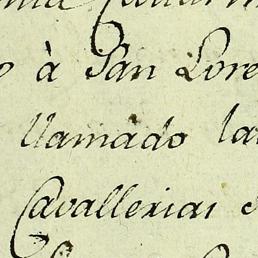 o à San Lore
llamado la
Cavallerias